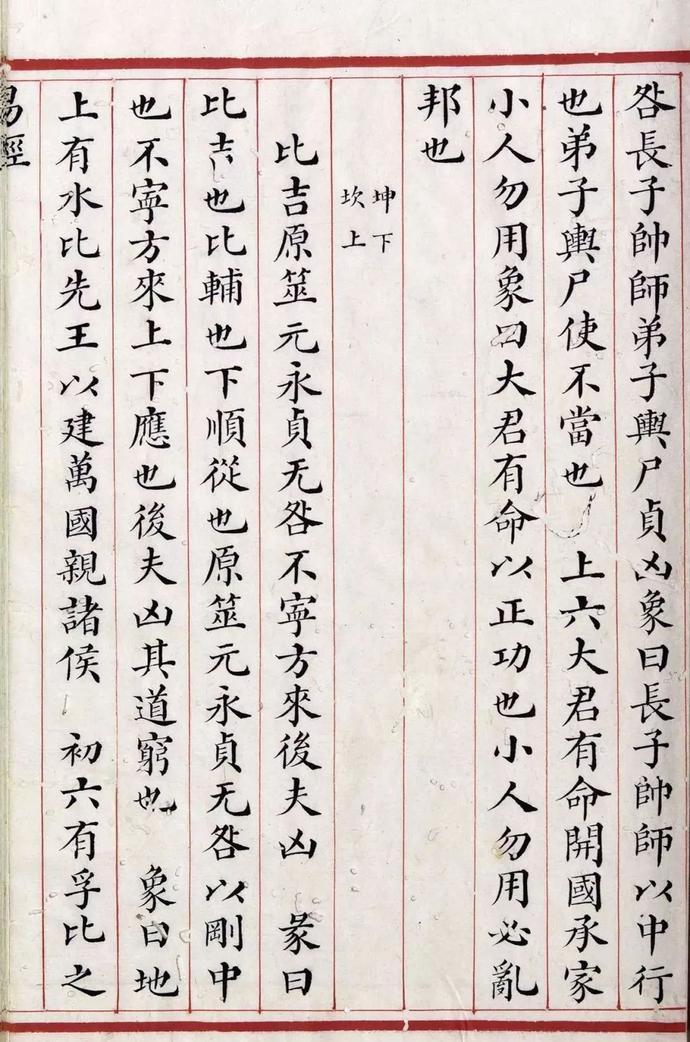 咎長子帥師弟子輿尸貞凶象曰長子帥師以中行
也弟子輿尸使不當也 上六大君有命開國承家
小人勿用象曰大君有命以正功也小人勿用必亂
邦也
坤下
坎上
比吉原筮元永貞无咎不寧方來後夫凶 彖曰
比吉也比輔也下順從也原筮元永貞无咎以剛中
也不寧方來上下應也後夫凶其道窮也 象曰地
上有水比先王以建萬國親諸侯 初六有孚比之
易經